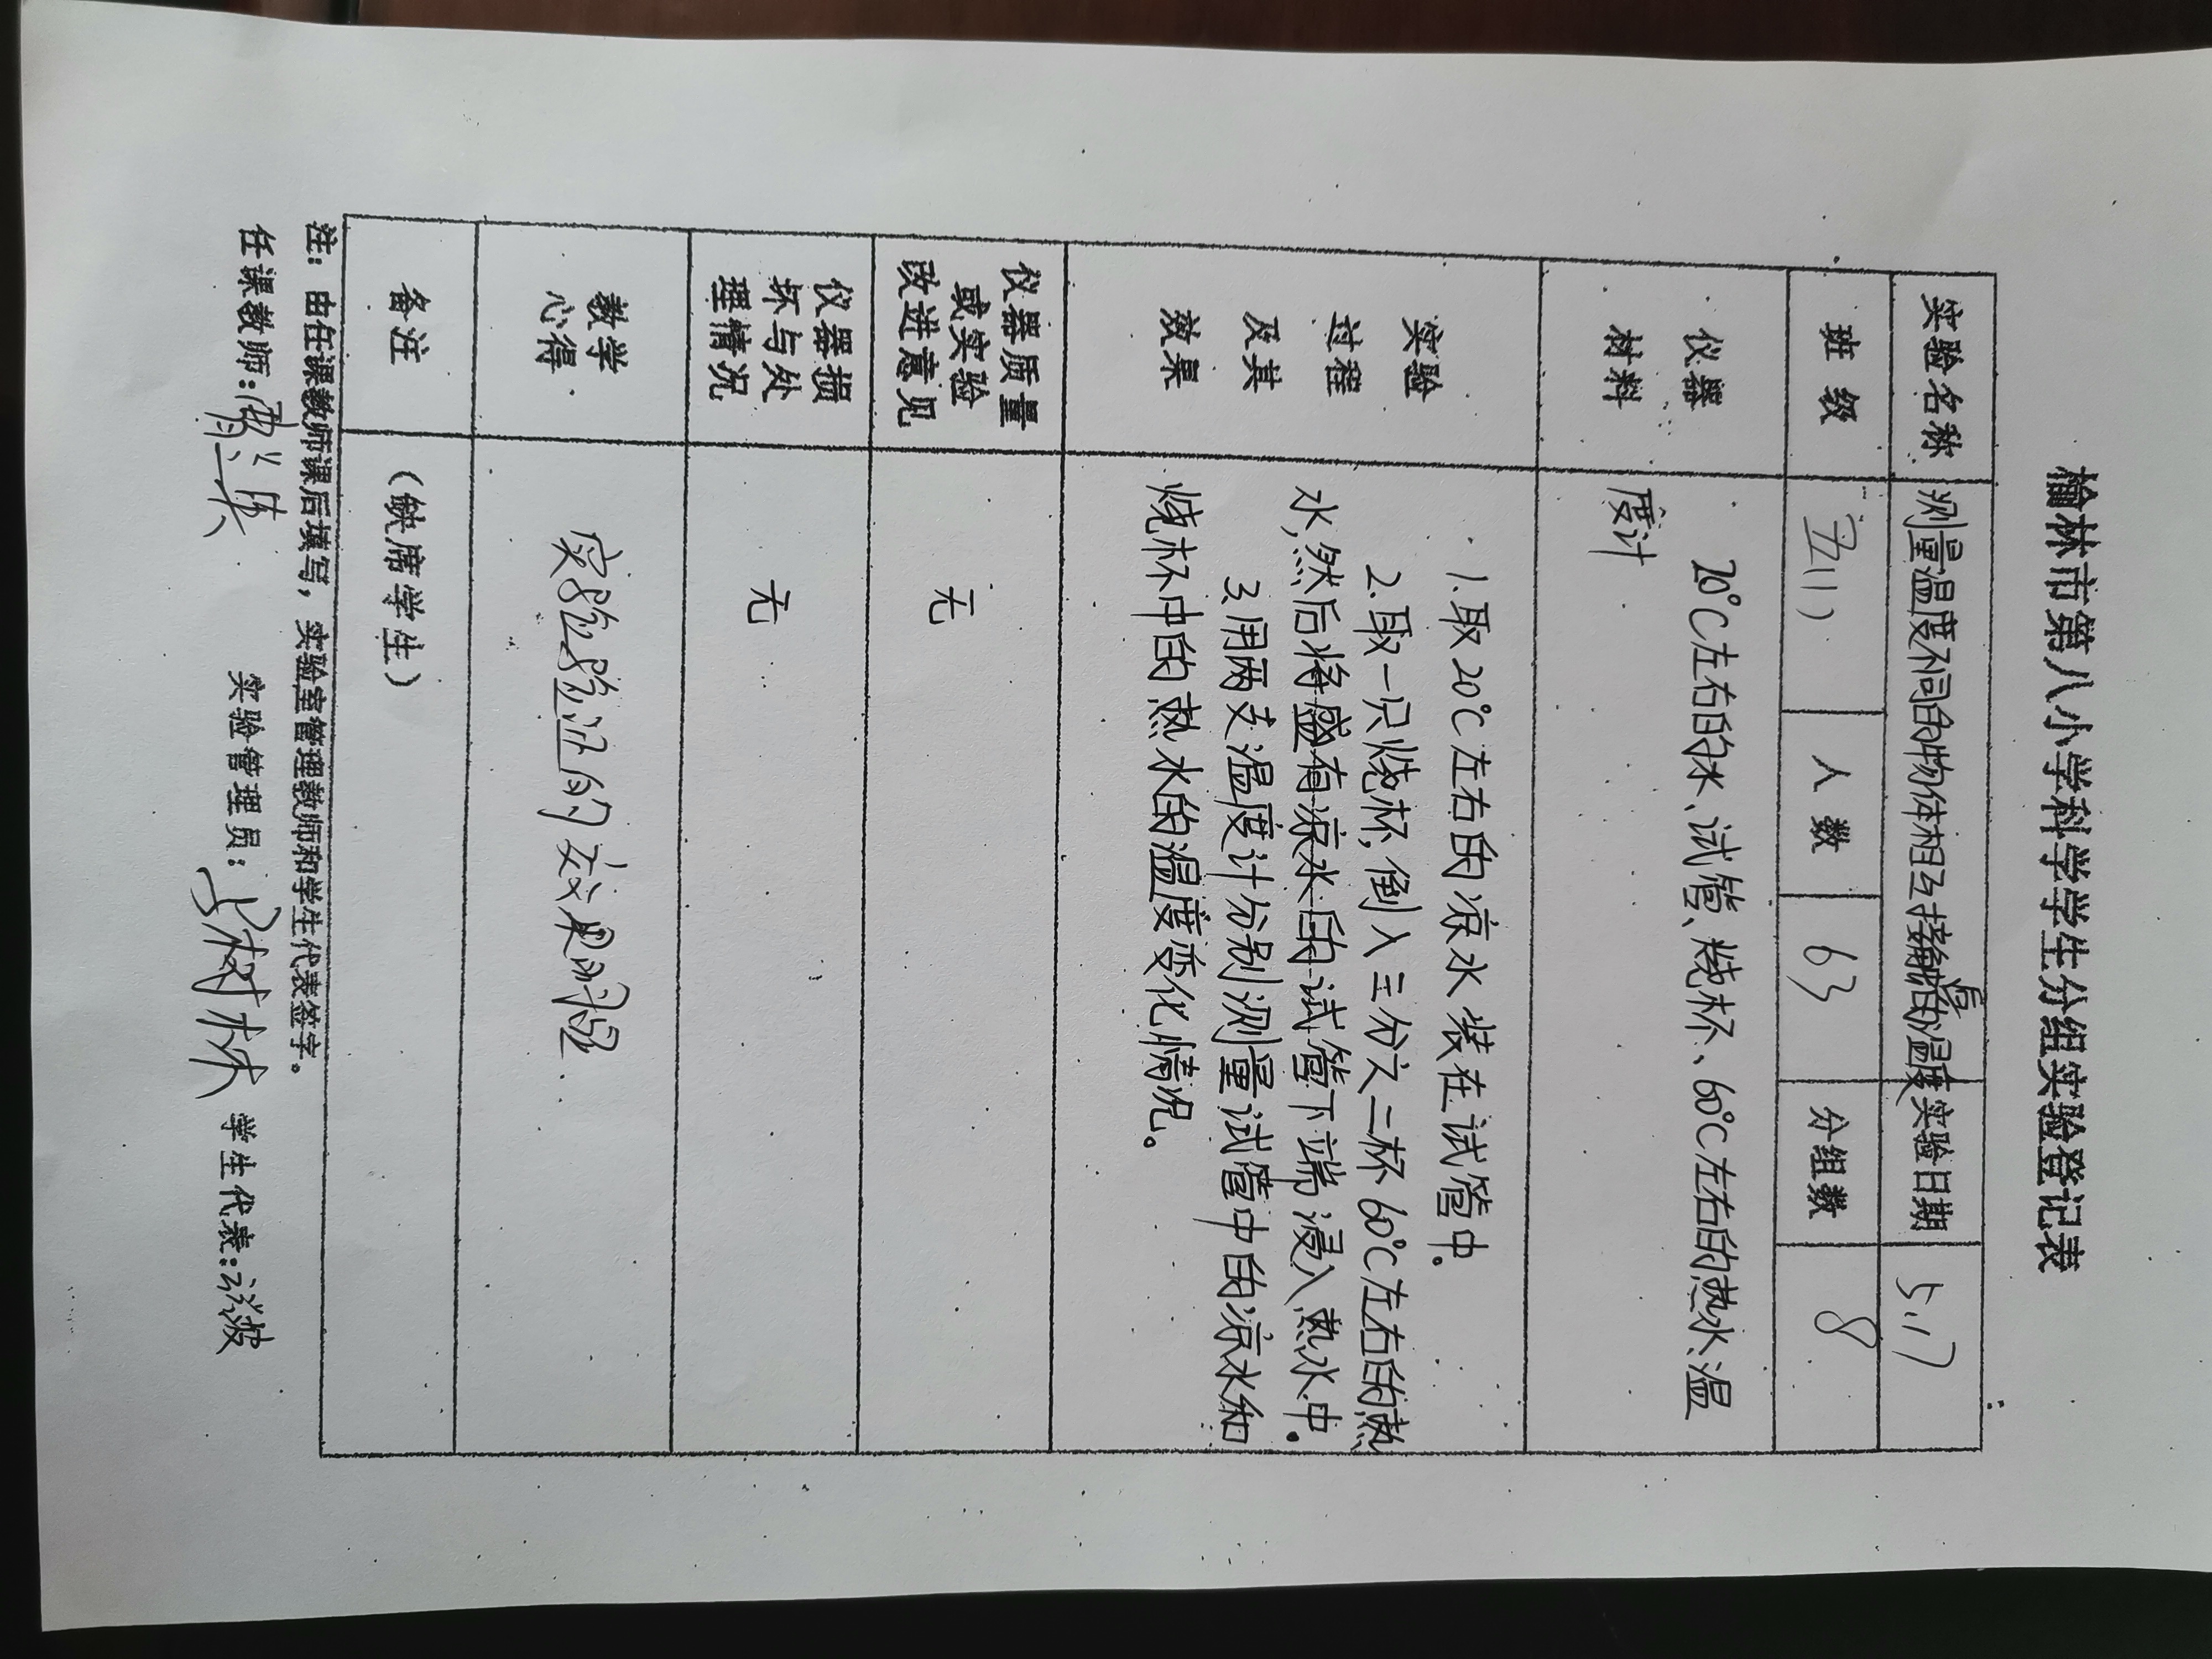 榆林市第八小学科学学生分组实验登记表
实验名称 测量温度不同的物体相互接触后的温度 实验日期 5.17
班 级 五(1) 人 数 63 分组数 8
仪器
材料
20℃左右的水、试管、烧杯、60℃左右的热水、温
度计
实验
过程
及其
效果
1.取20℃左右的凉水装在试管中.
2.取一只烧杯,倒入三分之二杯60℃左右的热
水,然后将盛有凉水的试管下端浸入热水中.
3.用两支温度计分别测量试管中的凉水和
烧杯中的热水的温度变化情况。
仪器质量
或实验
改进意见
无
仪器损
坏与处
理情况
无
教学
心得
实验验证的效果明显
备注 (缺席学生)
注：由任课教师课后填写，实验室管理教师和学生代表签字。
任课教师: 实验管理员: 学生代表: